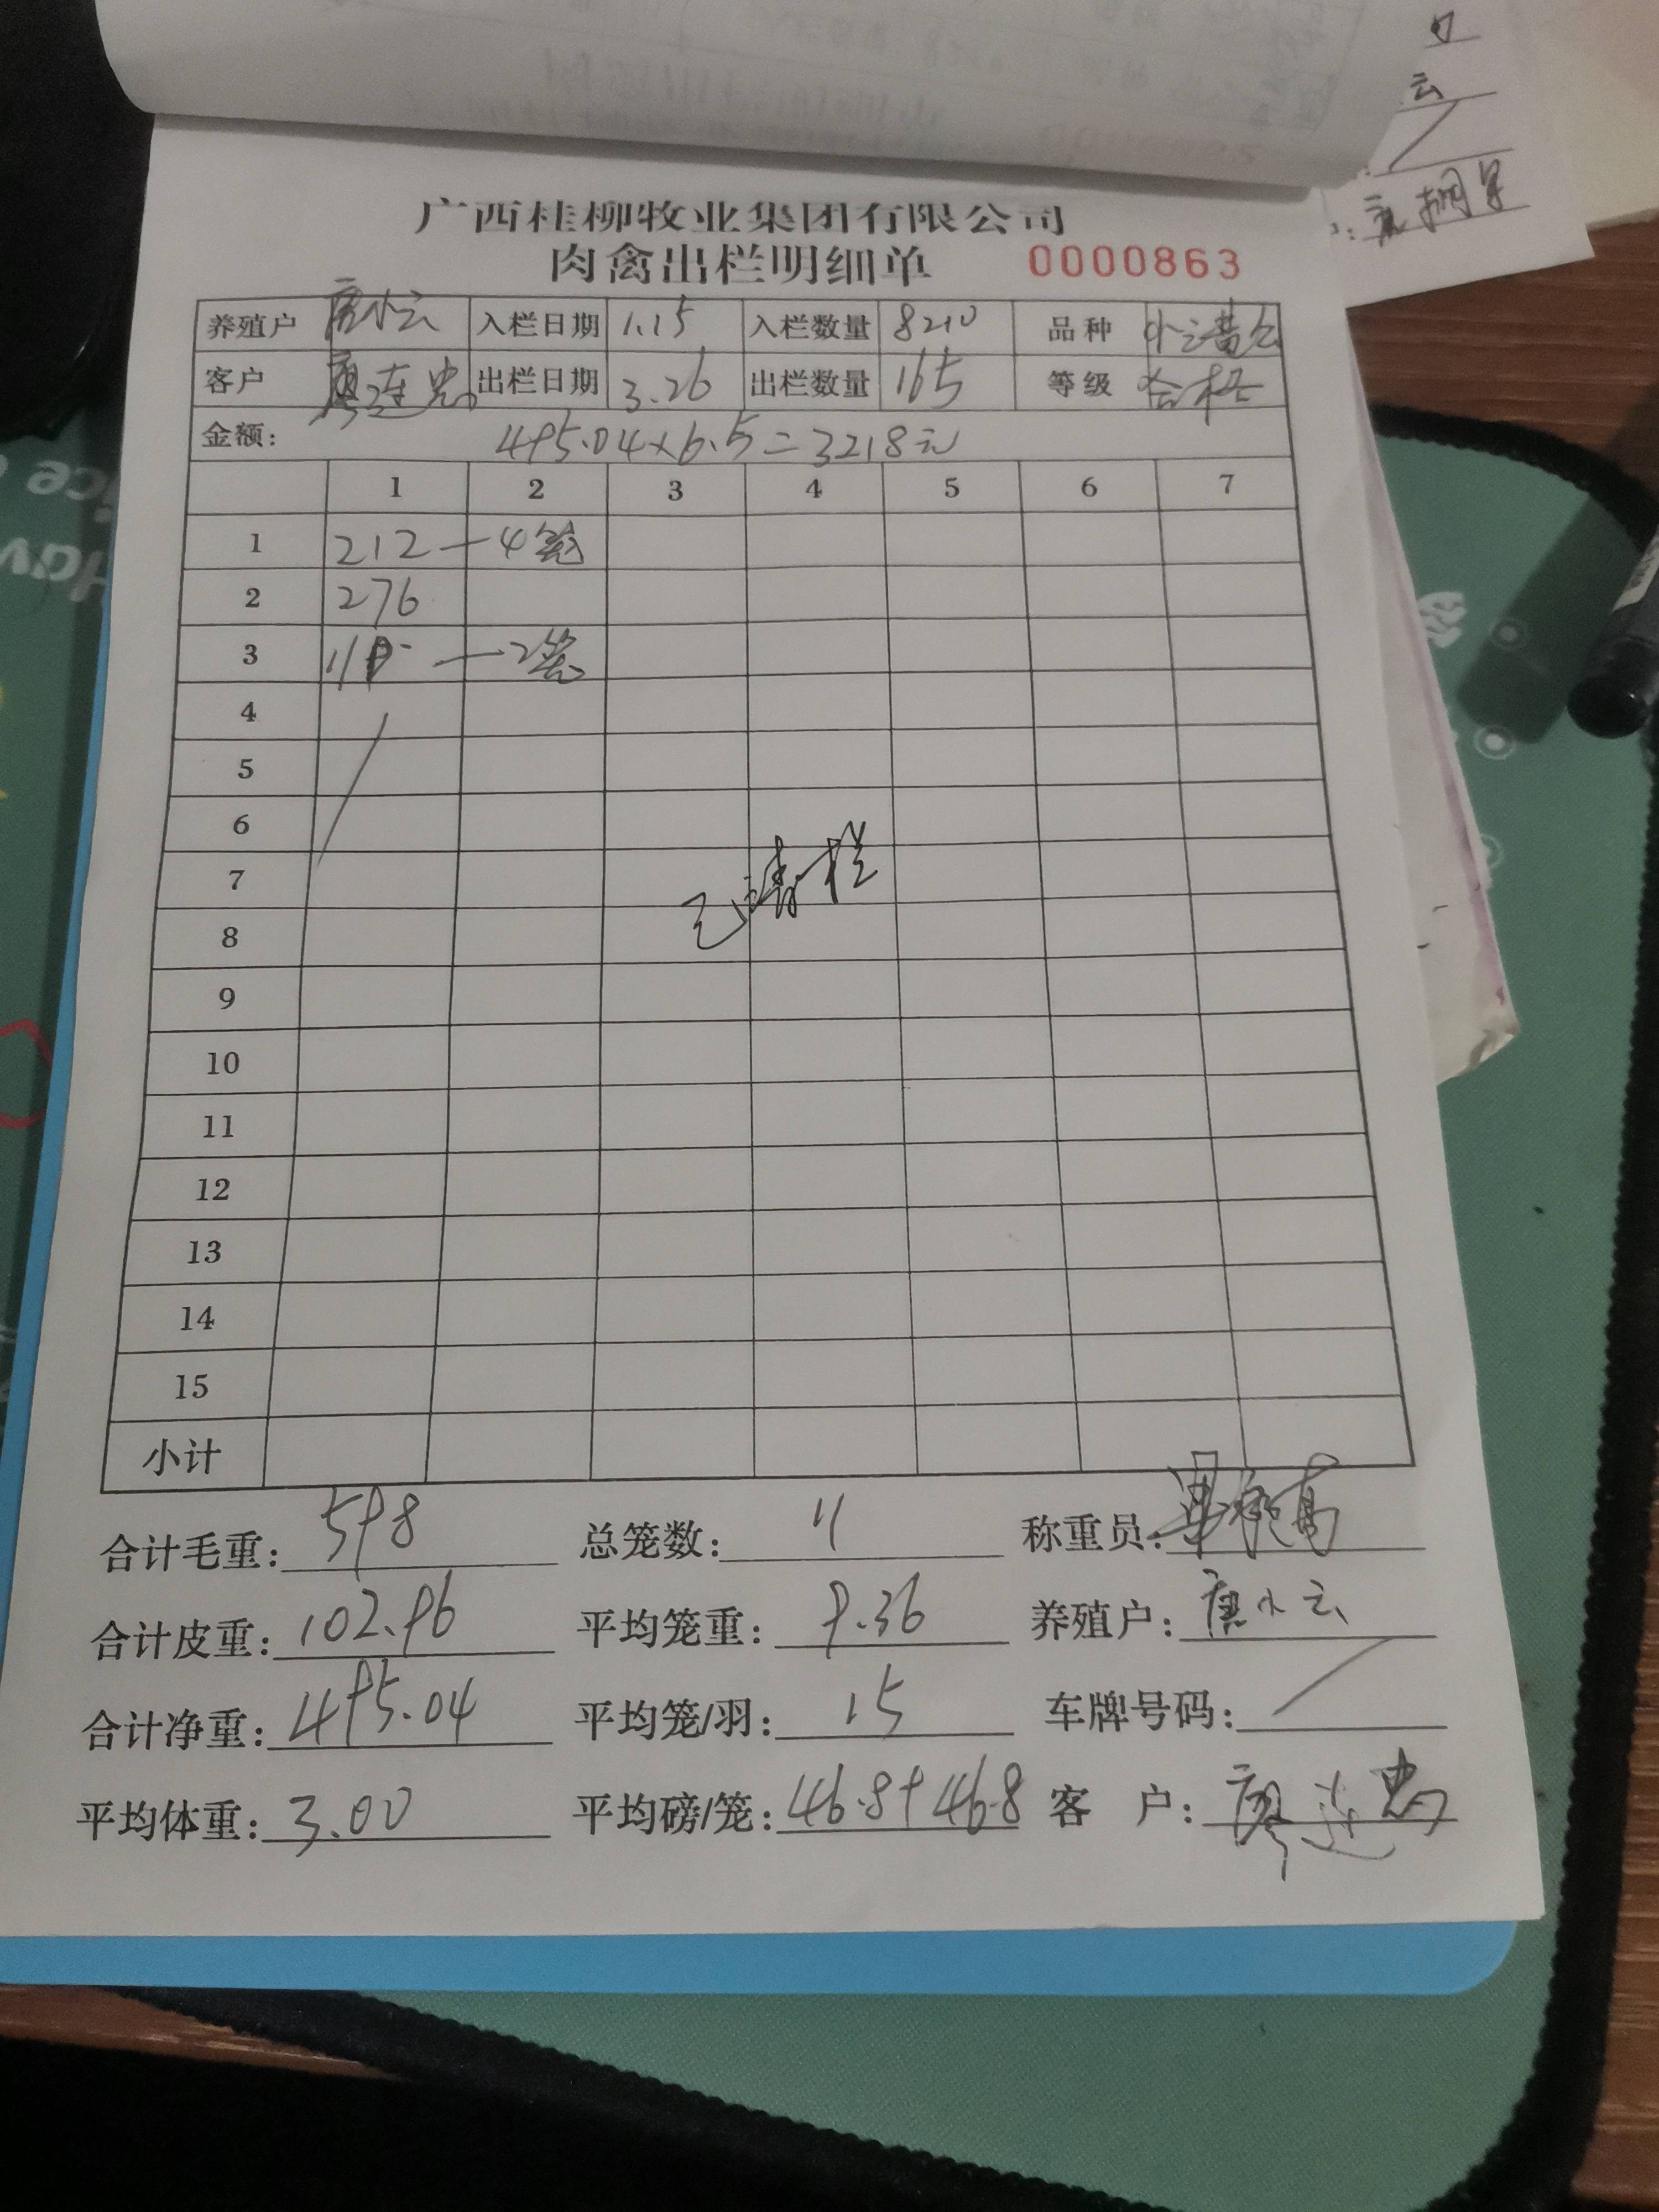 广西桂柳牧业集团有限公司
肉禽出栏明细单 0000863
养殖户 唐小云 入栏日期 1.15 入栏数量 8210 品种
客户 廖连忠 出栏日期 3.26 出栏数量 165 等级 合格
金额: 495.04×6.5=3218元
1 2 3 4 5 6 7
1 212 — 4笼
2 276
3 — 2笼
4
5
6
7
已清栏
8
9
10
11
12
13
14
15
小计
合计毛重: 598 总笼数: 11 称重员:
合计皮重: 102.96 平均笼重: 9.36 养殖户: 唐小云
合计净重: 495.04 平均笼/羽: 15 车牌号码: /
平均体重: 3.00 平均磅/笼: 46.8+46.8 客 户: 廖连忠
云